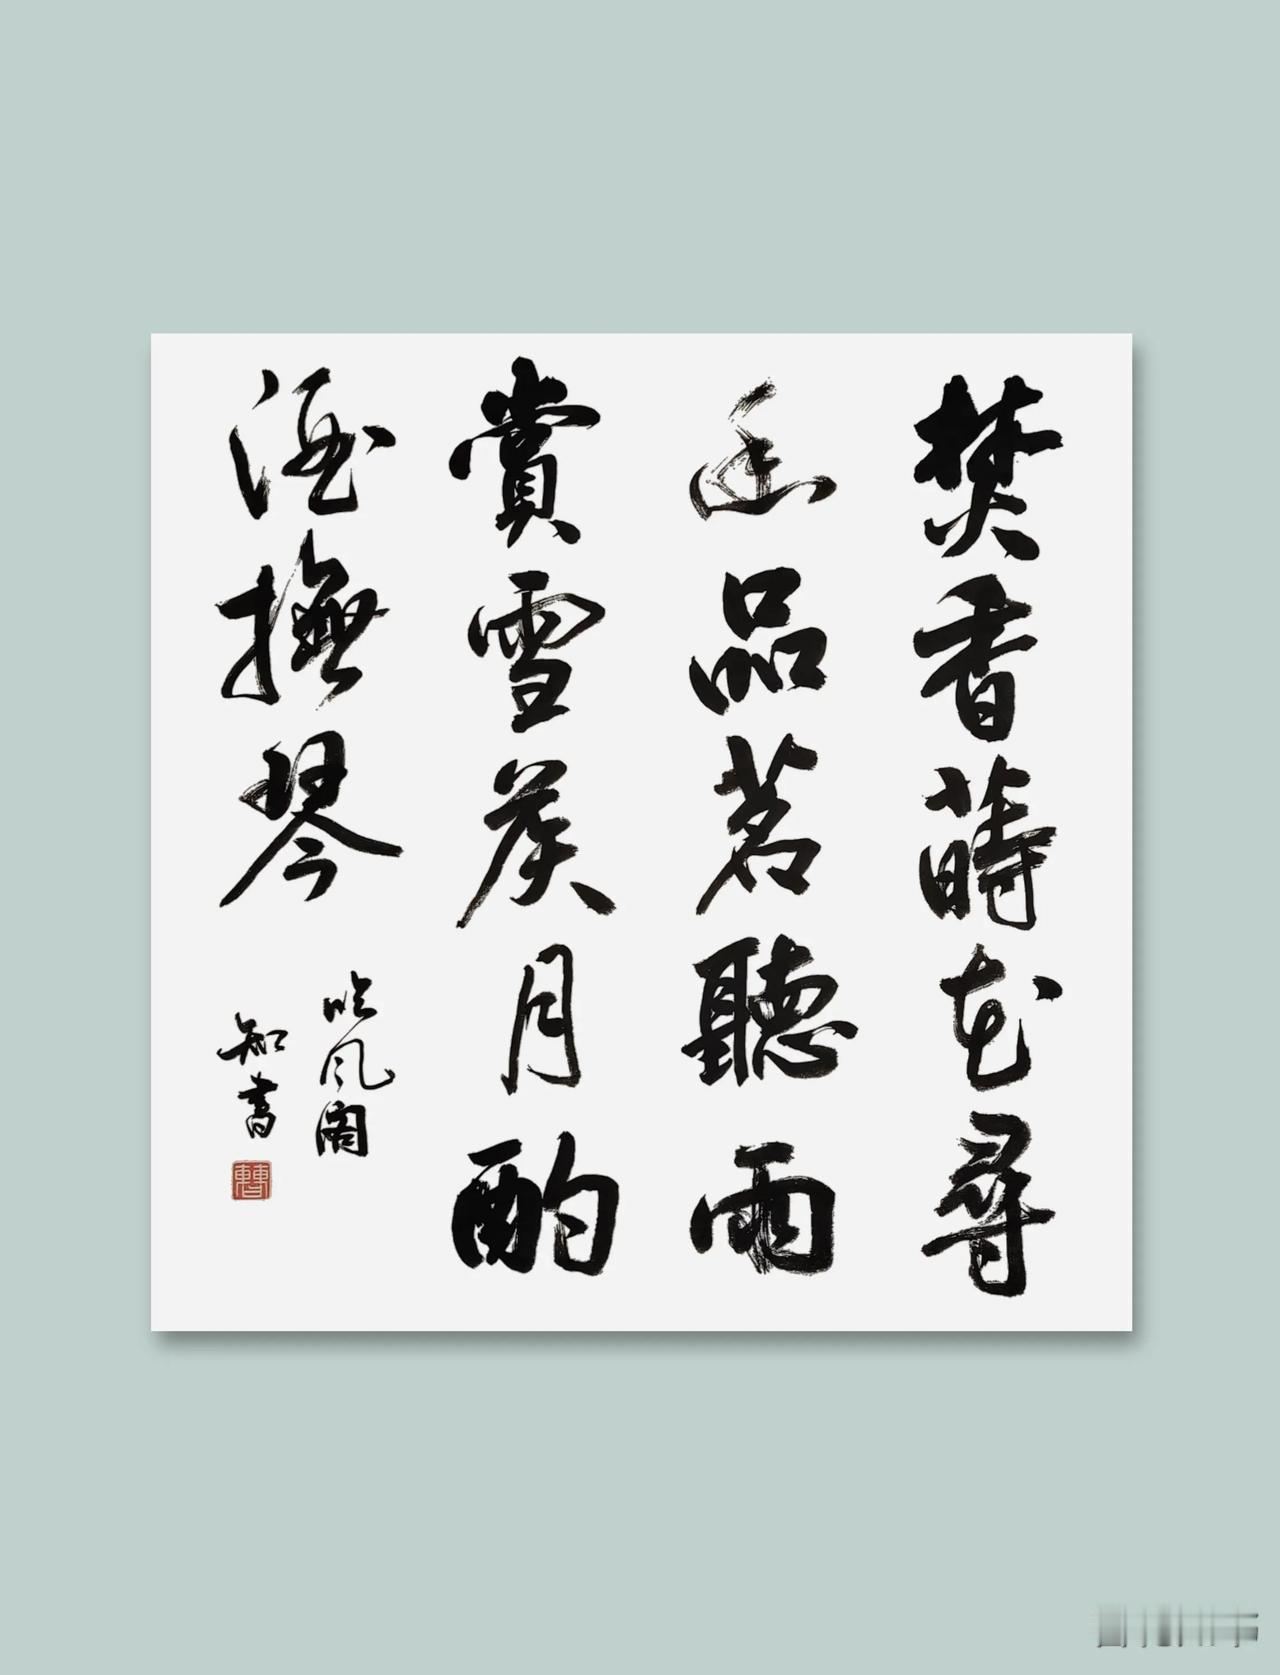 焚香蒔花尋
幽品茗聽雨
賞雪候月酌
酒撫琴
吟風閣
知書